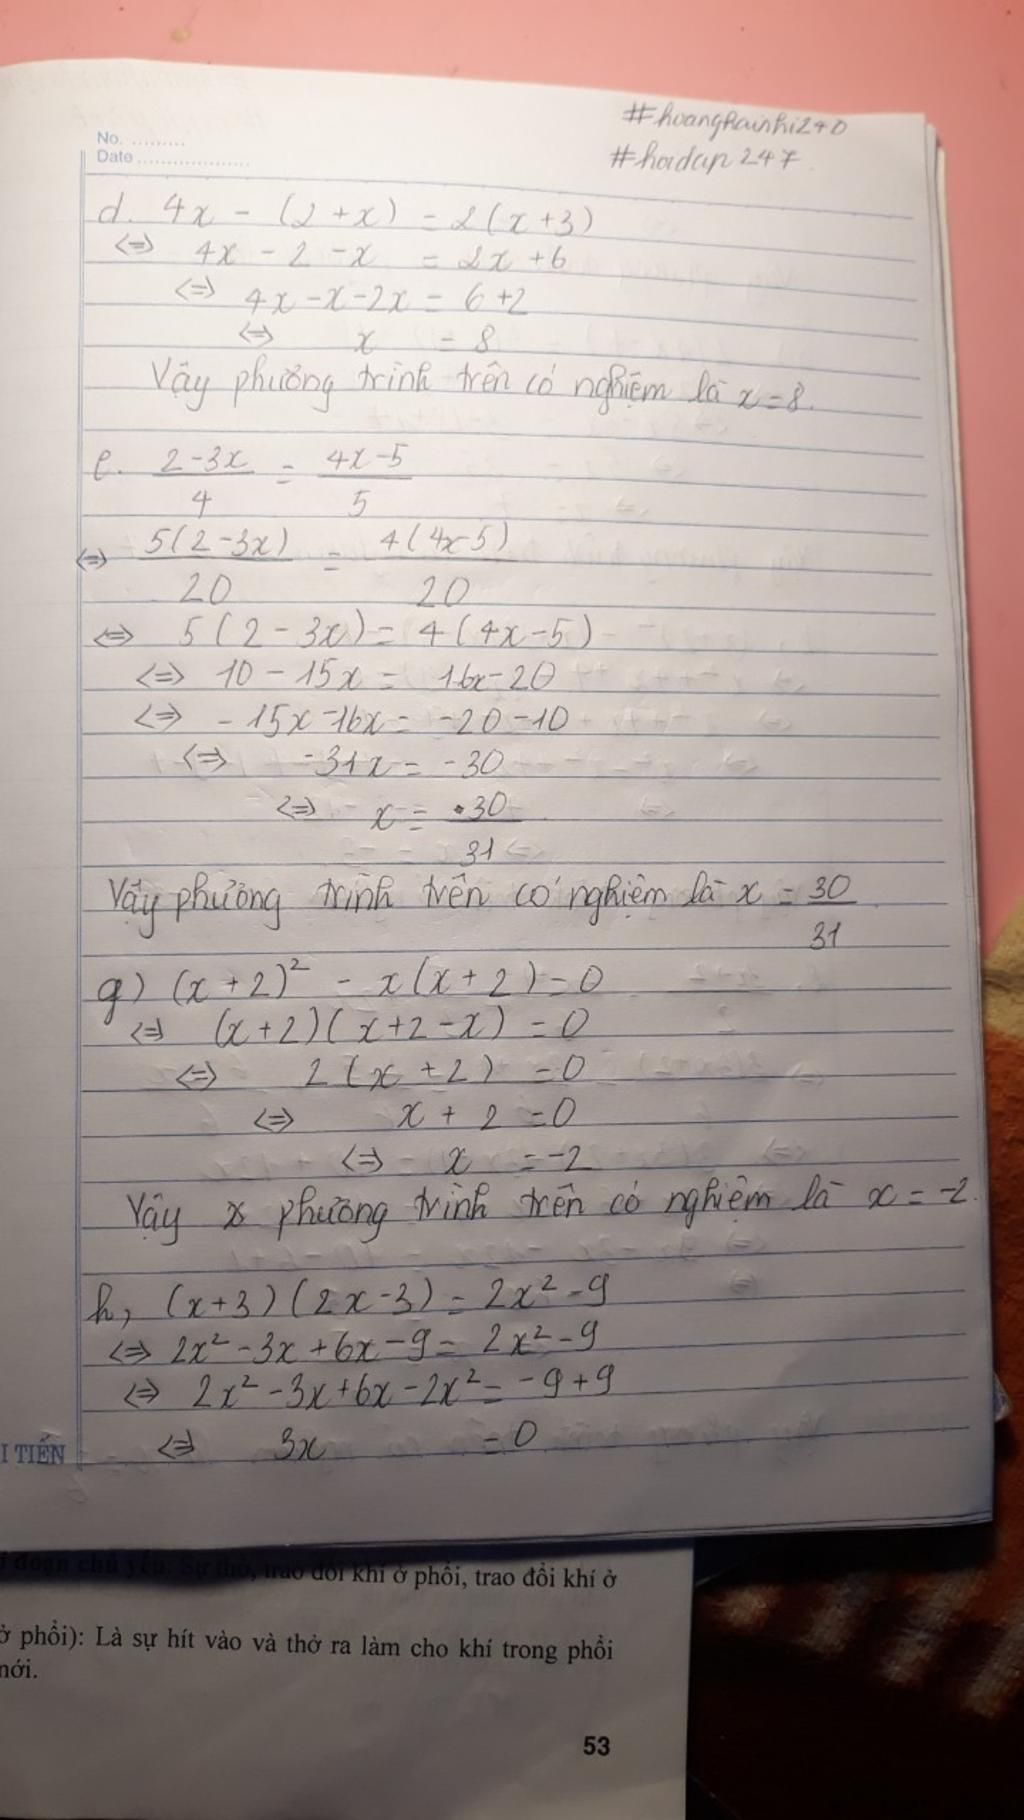 #hoanghainhi240
#hoidap247
No. .........
Date ...................
d. 4x - (2 + x) = 2(x + 3)
<=> 4x - 2 - x = 2x + 6
<=> 4x - x - 2x = 6 + 2
<=> x = 8
Vậy phương trình trên có nghiệm là x = 8.
e. (2 - 3x)/4 = (4x - 5)/5
<=> 5(2 - 3x)/20 = 4(4x - 5)/20
<=> 5(2 - 3x) = 4(4x - 5)
<=> 10 - 15x = 16x - 20
<=> - 15x - 16x = -20 - 10
<=> -31x = -30
<=> x = 30/31
Vậy phương trình trên có nghiệm là x = 30/31
g) (x + 2)² - x(x + 2) = 0
<=> (x + 2)(x + 2 - x) = 0
<=> 2(x + 2) = 0
<=> x + 2 = 0
<=> x = -2
Vậy x phương trình trên có nghiệm là x = -2.
h, (x + 3)(2x - 3) = 2x² - 9
<=> 2x² - 3x + 6x - 9 = 2x² - 9
<=> 2x² - 3x + 6x - 2x² = -9 + 9
<=> 3x = 0
I TIẾN
đoạn chủ yếu: Sự thở, trao đổi khí ở phổi, trao đổi khí ở
ở phổi): Là sự hít vào và thở ra làm cho khí trong phổi
mới.
53